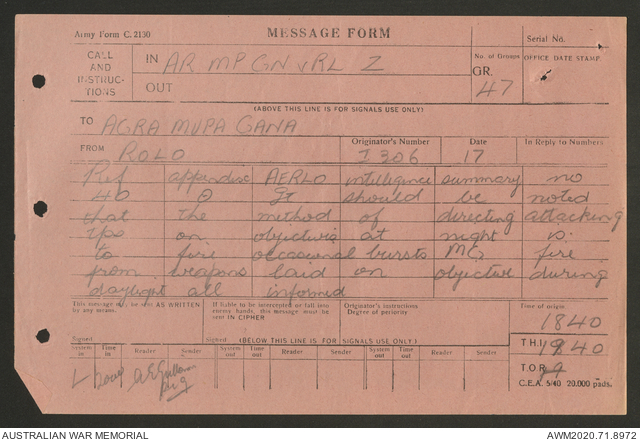 Army Form C. 2130
MESSAGE FORM
Serial No.
CALL AND INSTRUCTIONS
IN AR MP GN v RL Z
OUT
No. of Groups
GR. 47
OFFICE DATE STAMP
(ABOVE THIS LINE IS FOR SIGNALS USE ONLY)
TO AGRA MUPA GANA
FROM ROLO
Originator's Number I 306
Date 17
In Reply to Numbers
Ref appendix AERLO intelligence summary no
40 It should be noted
that the method of directing attacking
tps on objectives at night is
to fire occasional bursts MG fire
from weapons laid on objective during
daylight all informed
This message may be sent AS WRITTEN by any means.
If liable to be intercepted or fall into enemy hands, this message must be sent IN CIPHER
Originator's instructions
Degree of periority
Time of origin
1840
Signed
Signed
(BELOW THIS LINE IS FOR SIGNALS USE ONLY)
T.H.I. 1940
System in
Time in
Reader
Sender
System out
Time out
Reader
Sender
System out
Time out
Reader
Sender
T.O.R.
L
Sig
C.E.A. 5/40 20,000 pads.
AUSTRALIAN WAR MEMORIAL
AWM2020.71.8972